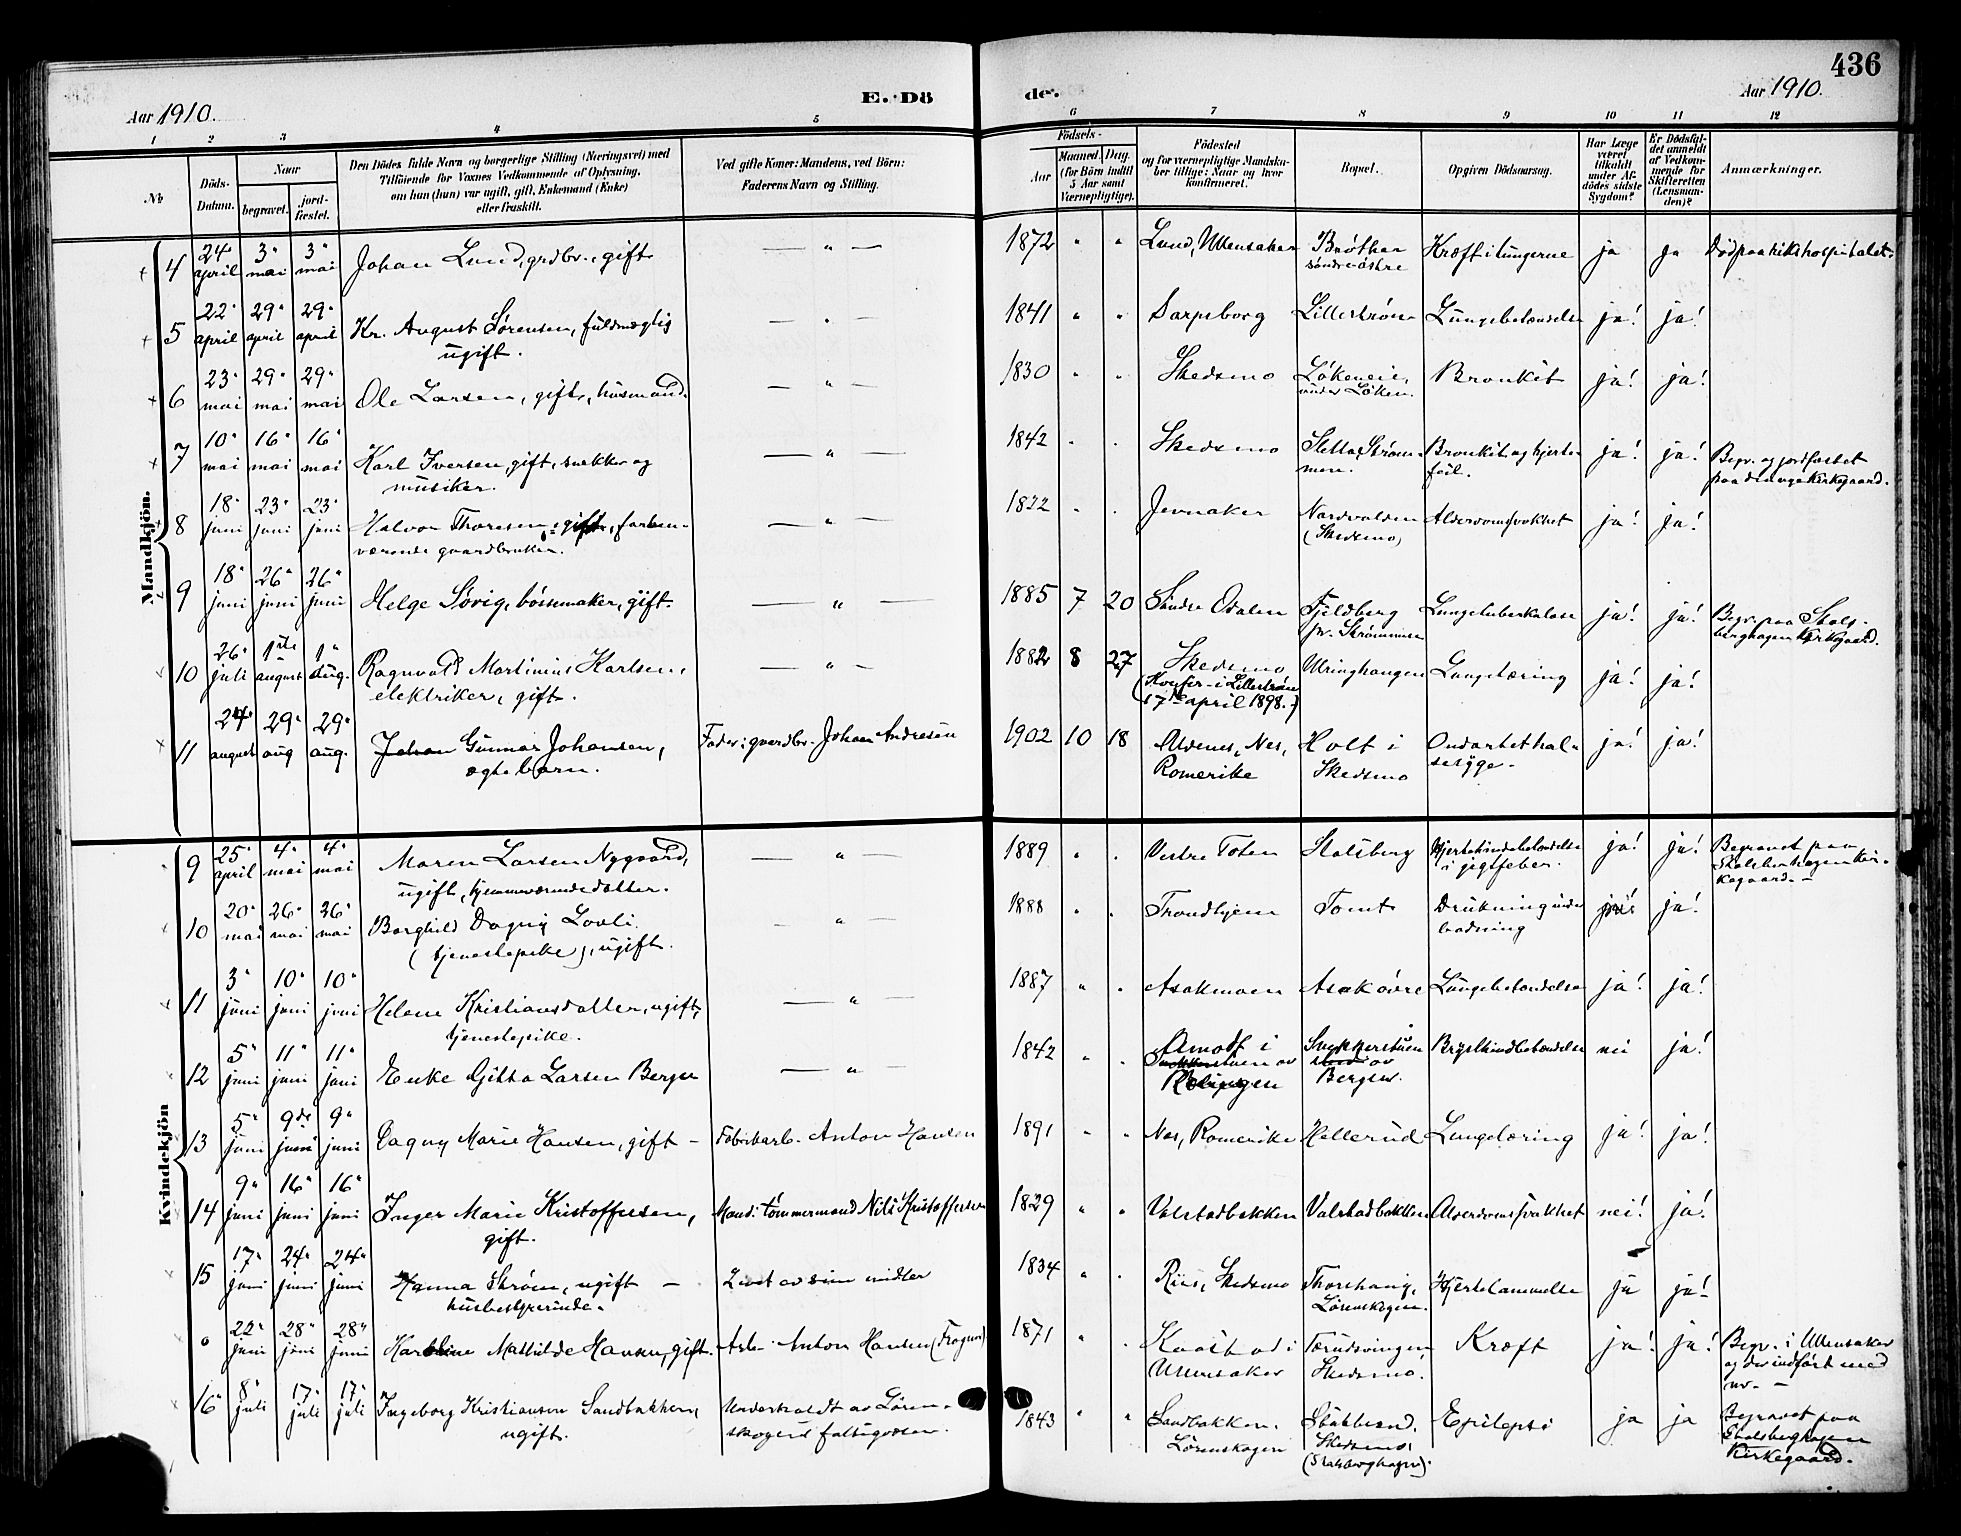 436
Aar 1910.
E. Dö
de.
Aar 1910.
1 2 3 4 5
6 7 8 9 10 11 12
No
Döds-Datum.
Naar
begravet.
jordfæstet.
Den Dödes fulde Navn og borgerlige Stilling (Næringsvei) med
Tilföiende for Voxnes Vedkommende af Oplysning,
om han (hun) var ugift, gift, Enkemand (Enke)
eller fraskilt.
Ved gifte Koner: Mandens, ved Börn:
Faderens Navn og Stilling.
Födsels-
Aar
Maaned. Dag.
(for Börn indtil
5 Aar samt
Værnepligtige).
Födested
og for værnepligtige Mandskaber tillige: Naar og hvor
konfirmeret.
Bopæl.
Opgiven Dödsaarsag.
Har Læge
været
tilkaldt
under Afdödes sidste
Sygdom?
Er Dödsfaldet anmeldt
af Vedkommende for
Skifteretten
(Lensmanden)?
Anmærkninger.
Mandkjön.
4 24' april 3' mai 3' mai Johan Lund, grdbr., gift — " — 1872 " " Lund, Ullensaker Bröther söndre östre Kræft i lungerne ja ja Död paa rikshospitalet.
5 22' april 29' april 29' april Kr. August Sørensen, fuldmægtig
ugift. — " — 1841 " " Sarpsborg Lillestrøm Lungebetændelse ja! ja!
6 23' mai 29' mai 29' mai Ole Larsen, gift, husmand. — " — 1830 " " Skedsmo Løkeneie, under Løken. Bronkit ja! ja!
7 10' mai 16' mai 16' mai Karl Iversen, gift, snekker og
musiker. — " — 1842 " " Skedsmo Sletta, Strømmen. Bronkit og hjertefeil. ja! ja! Begr. og jordfæstet
paa den nye kirkegaard.
8 18' juni 23' juni 23' juni Halvor Thoresen, gift, forhenværende gaardbruker. — " — 1822 " " Jevnaker Nordvolden
(Skedsmo) Alderdomssvakhet ja! ja!
9 18' juni 26' juni 26' juni Helge Sørig, børsemaker, gift. — " — 1885 7 20 Søndre Odalen Fjeldberg
pr. Strømmen Lungetuberkulose ja! ja! Begr. paa Skolsberghagen Kirkegaard.
10 26' juli 1ste august 1' aug. Ragnvald Martinius Karlsen,
elektriker, gift. — " — 1882 8 27 Skedsmo
(Konfir. i Lillestrøm
17de april 1898.) Uringhaugen Lungetæring ja! ja!
11 24' august 29' aug 29' aug. Johan Gunnar Johansen,
ægte barn. Fader: gaardbr. Johan Andresen 1902 10 18 Aldenes, Nes,
Romerike Holt i
Skedsmo Ondartet halsesyge. ja! ja!
Kvindekjön
9 25' april 4' mai 4' mai Maren Larsen Nygaard,
ugift, hjemmeværende datter. — " — 1889 " " Vestre Toten Stalsberg Hjertehindebetændelse
i gigtfeber. ja! ja! Begravet paa
Skolsberhagen Kirkegaard.
10 20' mai 26' mai 26' mai Borghild Dagny Lovli.
(tjenestepike), ugift. — " — 1888 " " Trondhjem Tomt Drukning under
badning ja!
11 3' juni 10' juni 10' juni Helene Kristiansdatter, ugift,
tjenestepike. — " — 1887 " " Asakmoen Asak övre Lungebetændelse ja! ja!
12 5' juni 11' juni 11' juni Enke Gitta Larsen Berger — " — 1842 " " Amodt i
Snekkerstuen av
Rælingen Snekkerstuen
av
Berger. Brysthindebetændelse nei ja!
13 5' juni 9de juni 9' juni Dagny Marie Hansen, gift - Fabrikarb. Anton Hansen 1891 " " Nes, Romerike Hellerud Lungetæring ja! ja!
14 9' juni 16' juni 16' juni Inger Marie Kristoffersen,
gift. Mand: tömmermand Nils Kristoffersen 1829 " " Valstadbakken Valstadbakken Alderdomssvakhet nei! ja!
15 17' juni 24' juni 24' juni Hanna Strøm, ugift -
husbestyrerinde. Levet av sine midler 1834 " " Riis, Skedsmo Thorshaug,
Lörenskogen. Hjertelammelse ja ja!
" 22' juni 28' juni 28' juni Karoline Mathilde Hansen, gift. Arb. Anton Hansen (Frogner) 1871 " " i
Ullensaker Tærudsvingen
Skedsmo. Kræft ja! ja! Begr. i Ullensaker
og der indført med
nr. -
16' 8' juli 17' juli 17' juli Ingeborg Kristiansen Sandbakken,
ugift. Underholdt av Lörenskogens fattigvæsen. 1843 " " Sandbakken,
Lörenskogen Stubberud,
Skedsmo,
(Stalsberghagen). Epilepsi ja ja Begravet paa
Stalsberghagen
Kirkegaard.